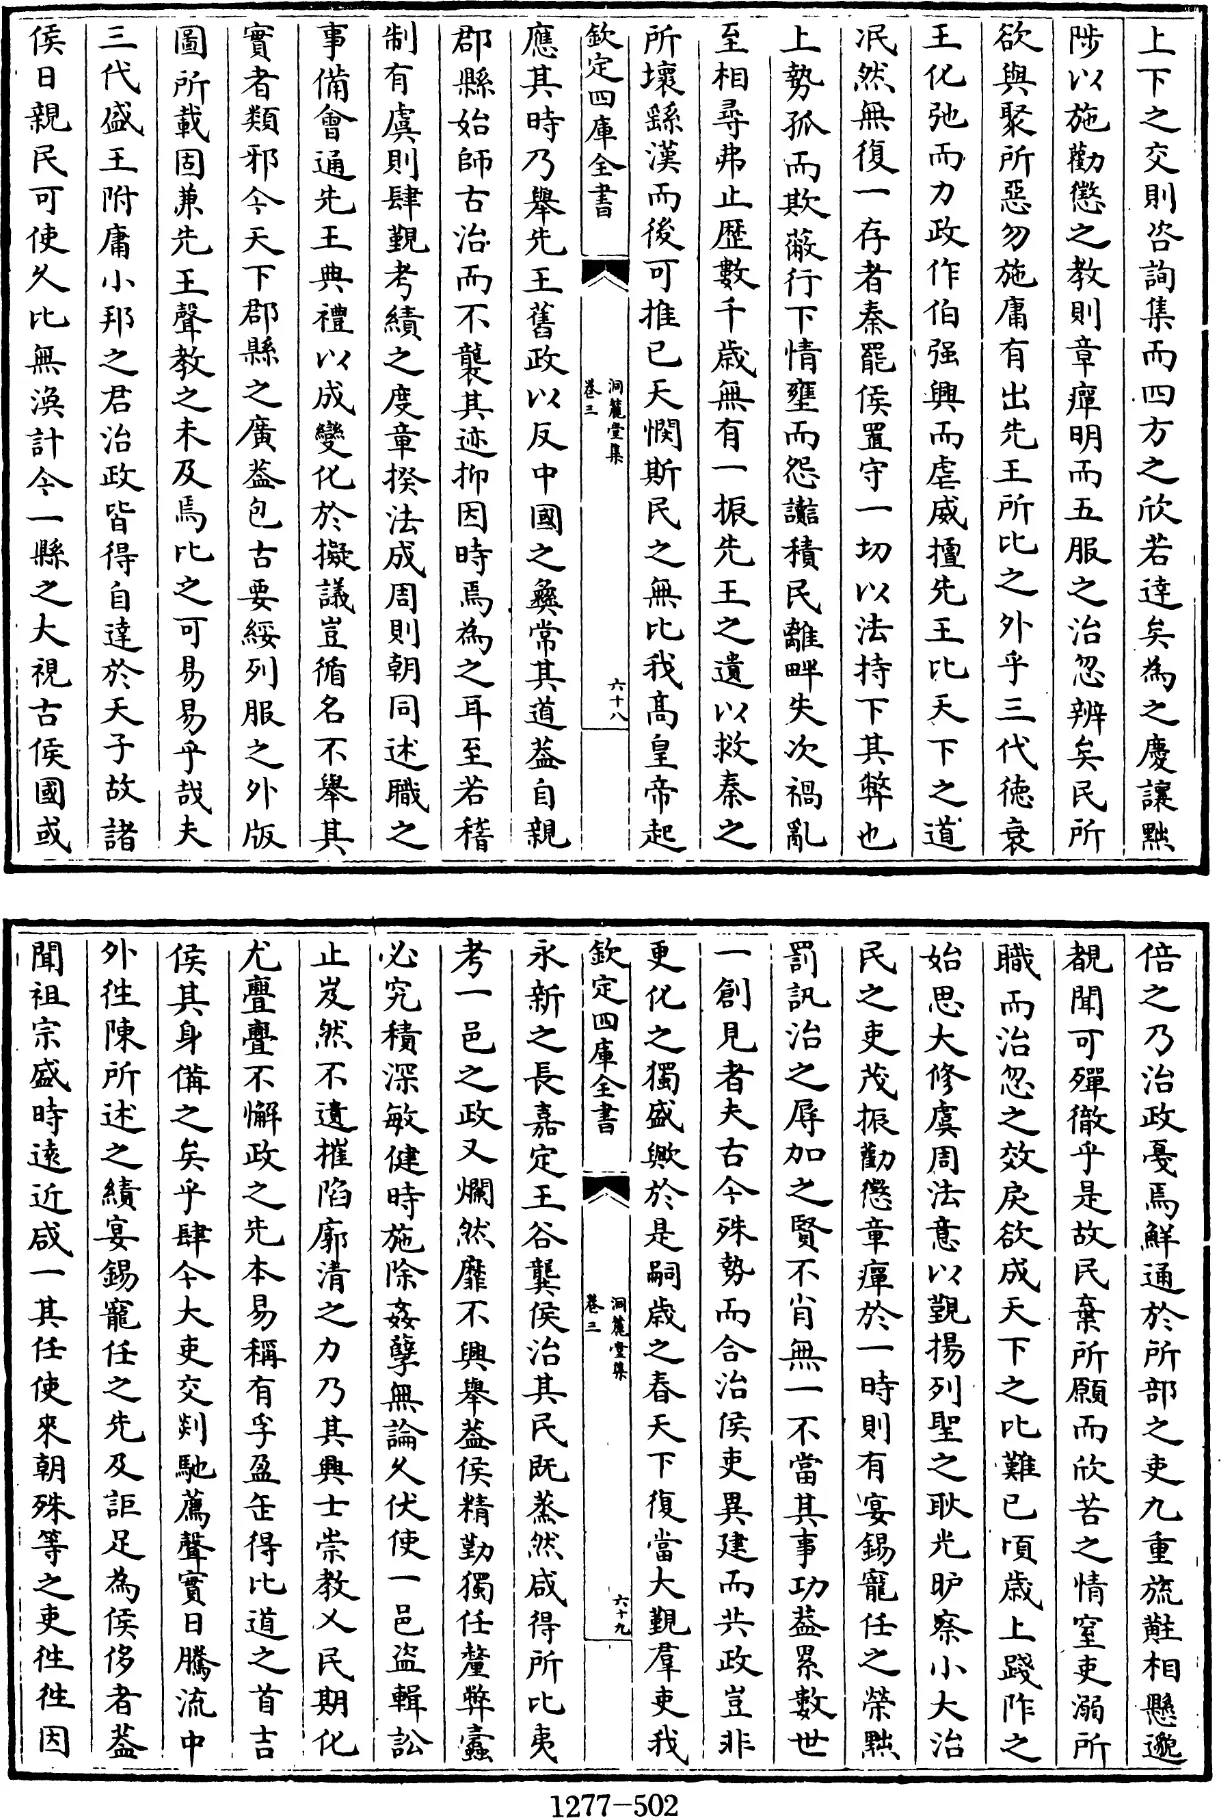 上下之交則咨詢集而四方之欣若達矣為之慶讓黜
陟以施勸懲之教則章癉明而五服之治忽辨矣民所
欲與聚所惡勿施庸有出先王所比之外乎三代徳衰
王化弛而力政作伯强興而虐威擅先王比天下之道
泯然無復一存者秦罷侯置守一切以法持下其弊也
上勢孤而欺蔽行下情壅而怨讟積民離畔失次禍亂
至相尋弗止歴數千歳無有一振先王之遺以救秦之
所壞繇漢而後可推已天憫斯民之無比我髙皇帝起
欽定四庫全書
洞麓堂集
卷三
六十八
應其時乃舉先王舊政以反中國之彝常其道葢自親
郡縣始師古治而不襲其迹抑因時焉為之耳至若稽
制有虞則肆覲考績之度章揆法成周則朝同述職之
事備會通先王典禮以成變化於擬議豈循名不舉其
實者類邪今天下郡縣之廣葢包古要綏列服之外版
圖所載固兼先王聲教之未及焉比之可易易乎哉夫
三代盛王附庸小邦之君治政皆得自達於天子故諸
侯日親民可使久比無渙計今一縣之大視古侯國或
倍之乃治政戞焉鮮通於所部之吏九重旒黈相懸邈
覩聞可殫徹乎是故民棄所願而欣苦之情窒吏溺所
職而治忽之效戾欲成天下之比難已頃歳上踐阼之
始思大修虞周法意以覲揚列聖之耿光旷察小大治
民之吏茂振勸懲章癉於一時則有宴錫寵任之榮黜
罰訊治之辱加之賢不肖無一不當其事功葢累數世
一創見者夫古今殊勢而合治侯吏異建而共政豈非
更化之獨盛歟於是嗣歳之春天下復當大覲羣吏我
欽定四庫全書
洞麓堂集
卷三
六十九
永新之長嘉定王谷龔侯治其民既蒸然咸得所比夷
考一邑之政又爛然靡不興舉葢侯精勤獨任釐弊蠹
必究積深敏健時施除姦孽無論久伏使一邑盜輯訟
止岌然不遺摧陷廓清之力乃其興士崇教乂民期化
尤亹亹不懈政之先本易稱有孚盈缶得比道之首吉
侯其身備之矣乎肆今大吏交剡馳薦聲實日騰流中
外徃陳所述之績宴錫寵任之先及詎足為侯侈者葢
聞祖宗盛時逺近咸一其任使來朝殊等之吏徃徃因
1277—502